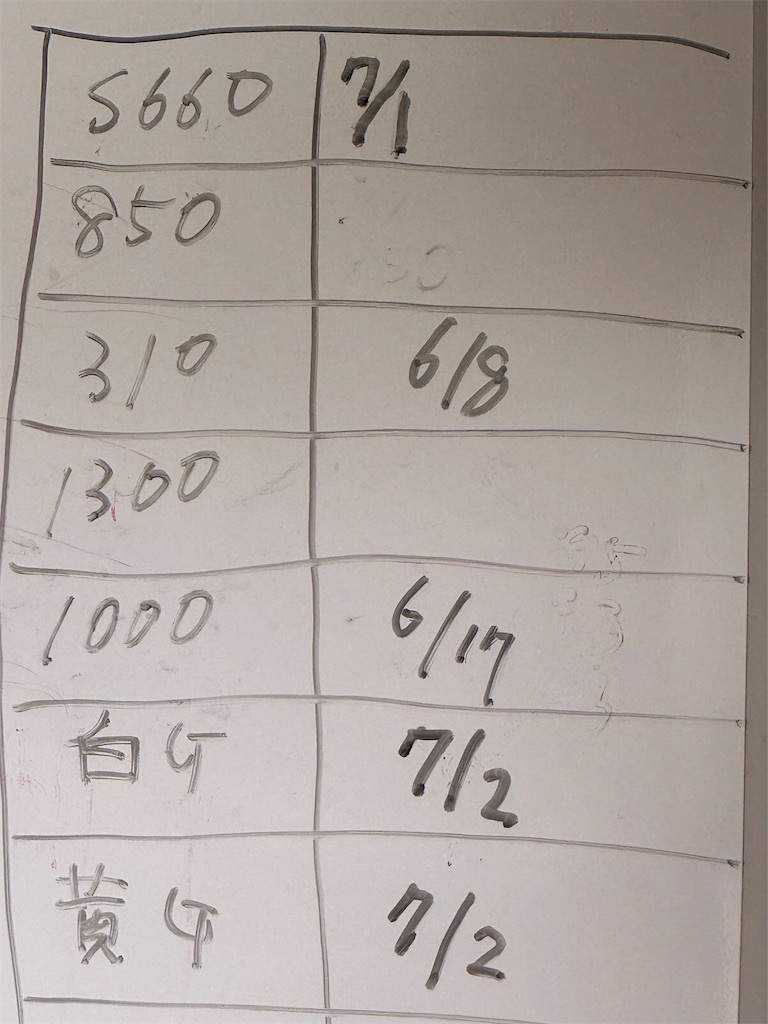 S660 7/1
850
310 6/8
1300
1000 6/17
白G 7/2
黄G 7/2